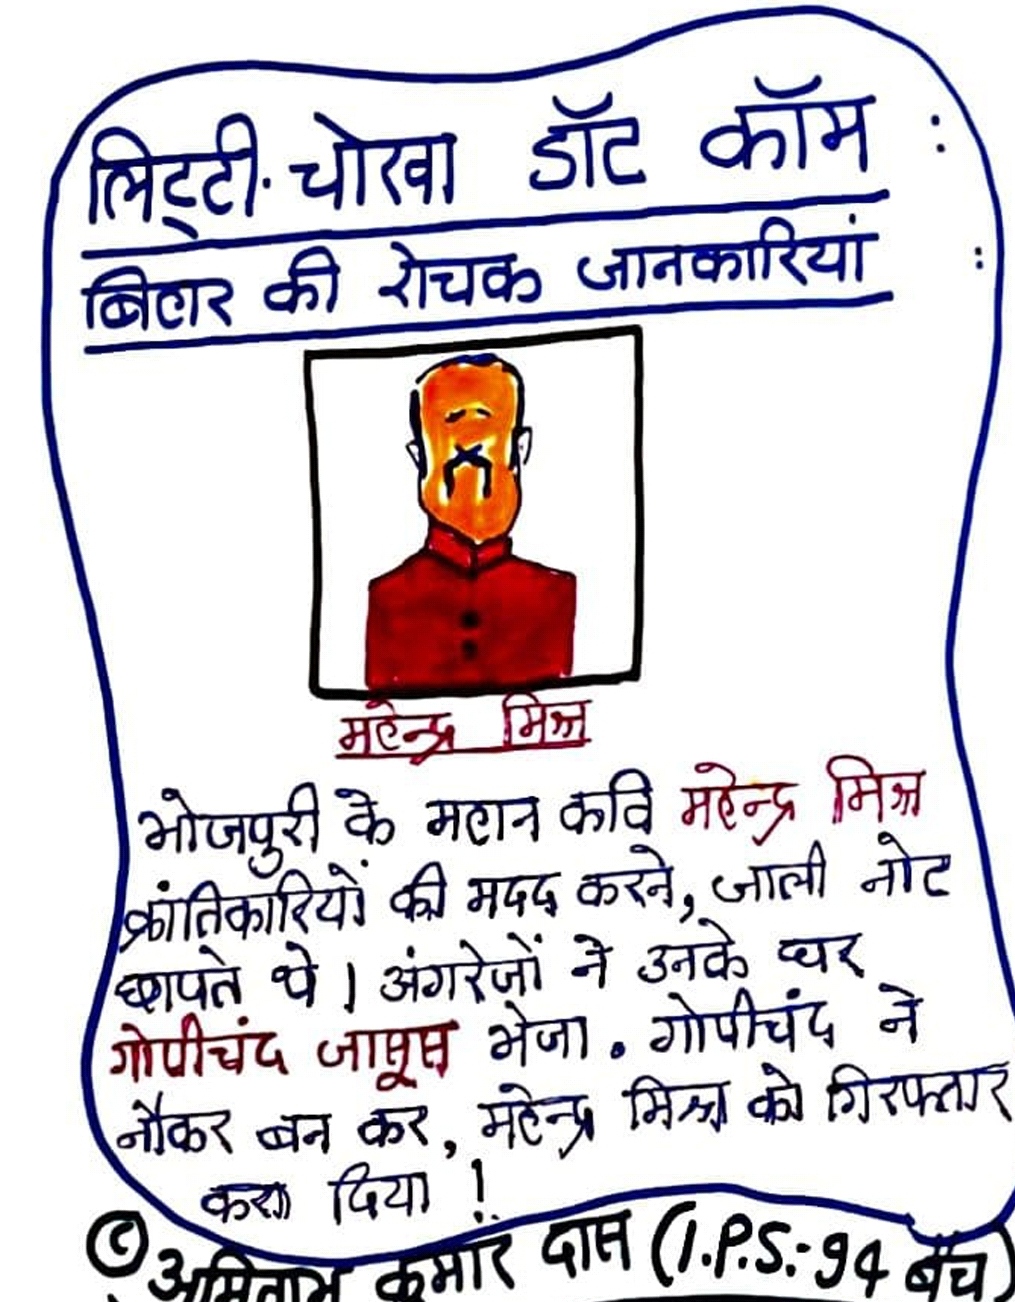 लिट्टी-चोखा डॉट कॉम :
बिहार की रोचक जानकारियां :
महेन्द्र मिश्र
भोजपुरी के महान कवि महेन्द्र मिश्र
क्रांतिकारियों की मदद करने, जाली नोट
छापते थे। अंगरेजों ने उनके घर
गोपीचंद जासूस भेजा. गोपीचंद ने
नौकर बन कर, महेन्द्र मिश्र को गिरफ्तार
करा दिया !
© अमिताभ कुमार दास (I.P.S:-94 बैच)